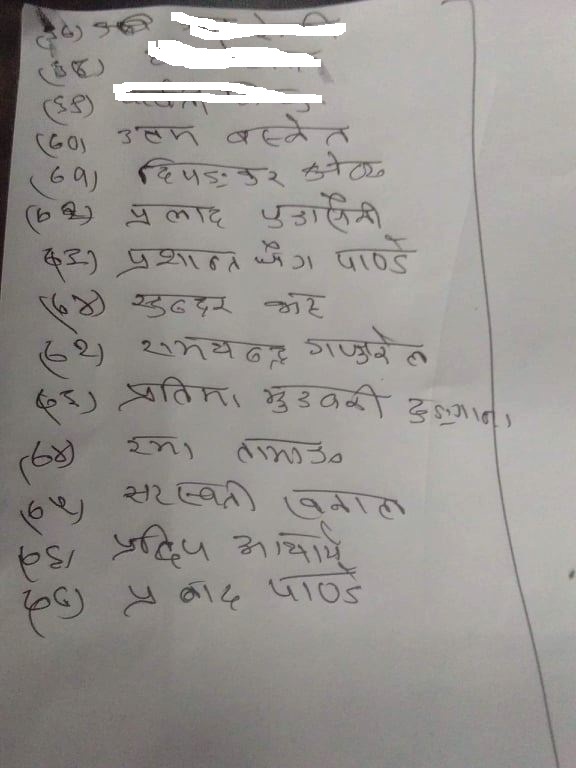 (५७)
(५८)
(५९)
(६०) उत्तम बस्नेत
(६१) दिपङ्कर श्रेष्ठ
(६२) प्रलाद पुडासैनी
(६३) प्रशान्त जैग पाण्डे
(६४) सुन्दर भट्ट
(६२) रामचन्द्र गजुरेल
(६३) प्रतिमा मुडवरी ढुङ्गाना
(६४) रमा तामाङ
(६५) सरस्वती खनाल
(६६) प्रदिप आचार्य
(६७) प्रसाद पाण्डे